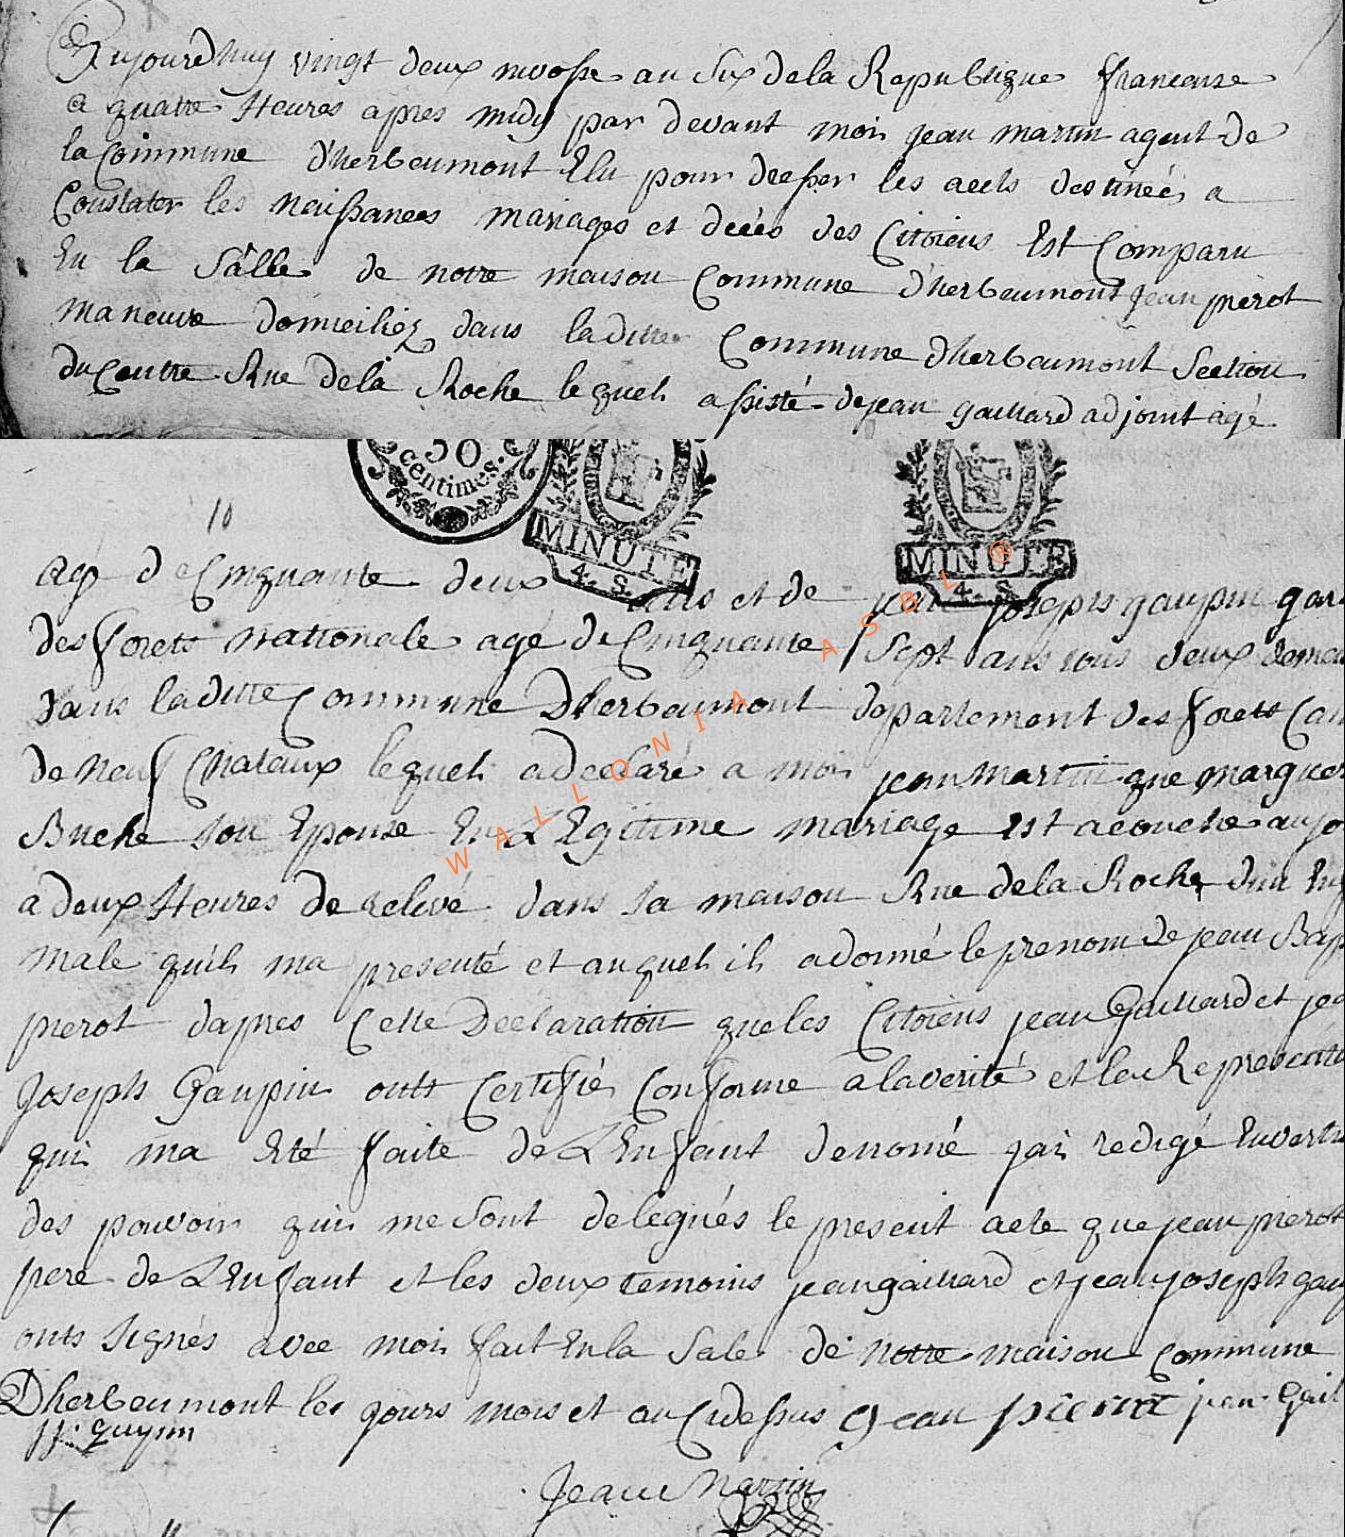 Aujourdhuy vingt deux nivosse an Six de la Republique franceuse
a quatre Heures apres midy par devant moi jean martin agent de
la Commune d'herbeumont Elu pour dresser les acts destinées a
Constater les naissances mariages et décés des Citoiens Est Comparu
En la Sâlle de notre maison Commune d'herbeumont jean pierot
maneuve domiciliez dans laditte Commune dherbeumont Section
du Centre Rue de la Roche lequel assisté de jean gaillard adjoint agé
50
centimes.
MINUTE
4. S.
MINUTE
4. S.
10
agé de Cinquante deux ans et de jean joseph gaupin gar
des forets nationale agé de Cinquante Sept ans tous deux demeu
dans laditte Commune Dherbeumont departement des forets Can
de neuf Chateaux lequel a declaré a moi jean martin que marguer
Buche son Epouse En LEgitime mariage est acouché aujo
a deux Heures de relevé dans sa maison Rue de la Roche dun En
male quil ma presenté et auquel il a donné le prenom de jean Bap
pierot dapres Cette Declaration que les Citoiens jean Gaillard et jea
Joseph Gaupin onts Certifié Conforme a la verité et la Representa
qui ma Eté faite de LEnfant denomé jai redigé En vertu
des pouvoir qui me sont delegués le present acte que jean pierot
pere de LEnfant et les deux temoins jean gaillard et jean joseph gau
onts Signés avec moi fait En la Sale de notre maison Commune
Dherbeumont les jours mois et an Cidessus Jean pierot jean gail
jj. gaupin
Jean Martin
WALLONIA ASBL ®